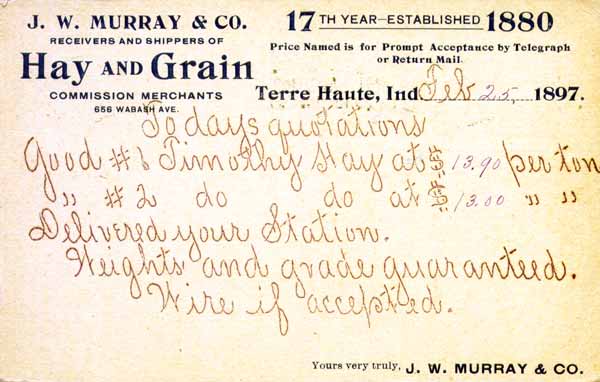 J. W. MURRAY & CO.
RECEIVERS AND SHIPPERS OF
Hay AND Grain
COMMISSION MERCHANTS
656 WABASH AVE.
17TH YEAR—ESTABLISHED 1880
Price Named is for Prompt Acceptance by Telegraph
or Return Mail.
Terre Haute, Ind. Feb 25, 1897.
To days quotations
Good #1 Timothy Hay at $13.90 per ton
" #2 do do at $13.00 " "
Delivered your Station.
Weights and grade guaranteed.
Wire if accepted.
Yours very truly, J. W. MURRAY & CO.